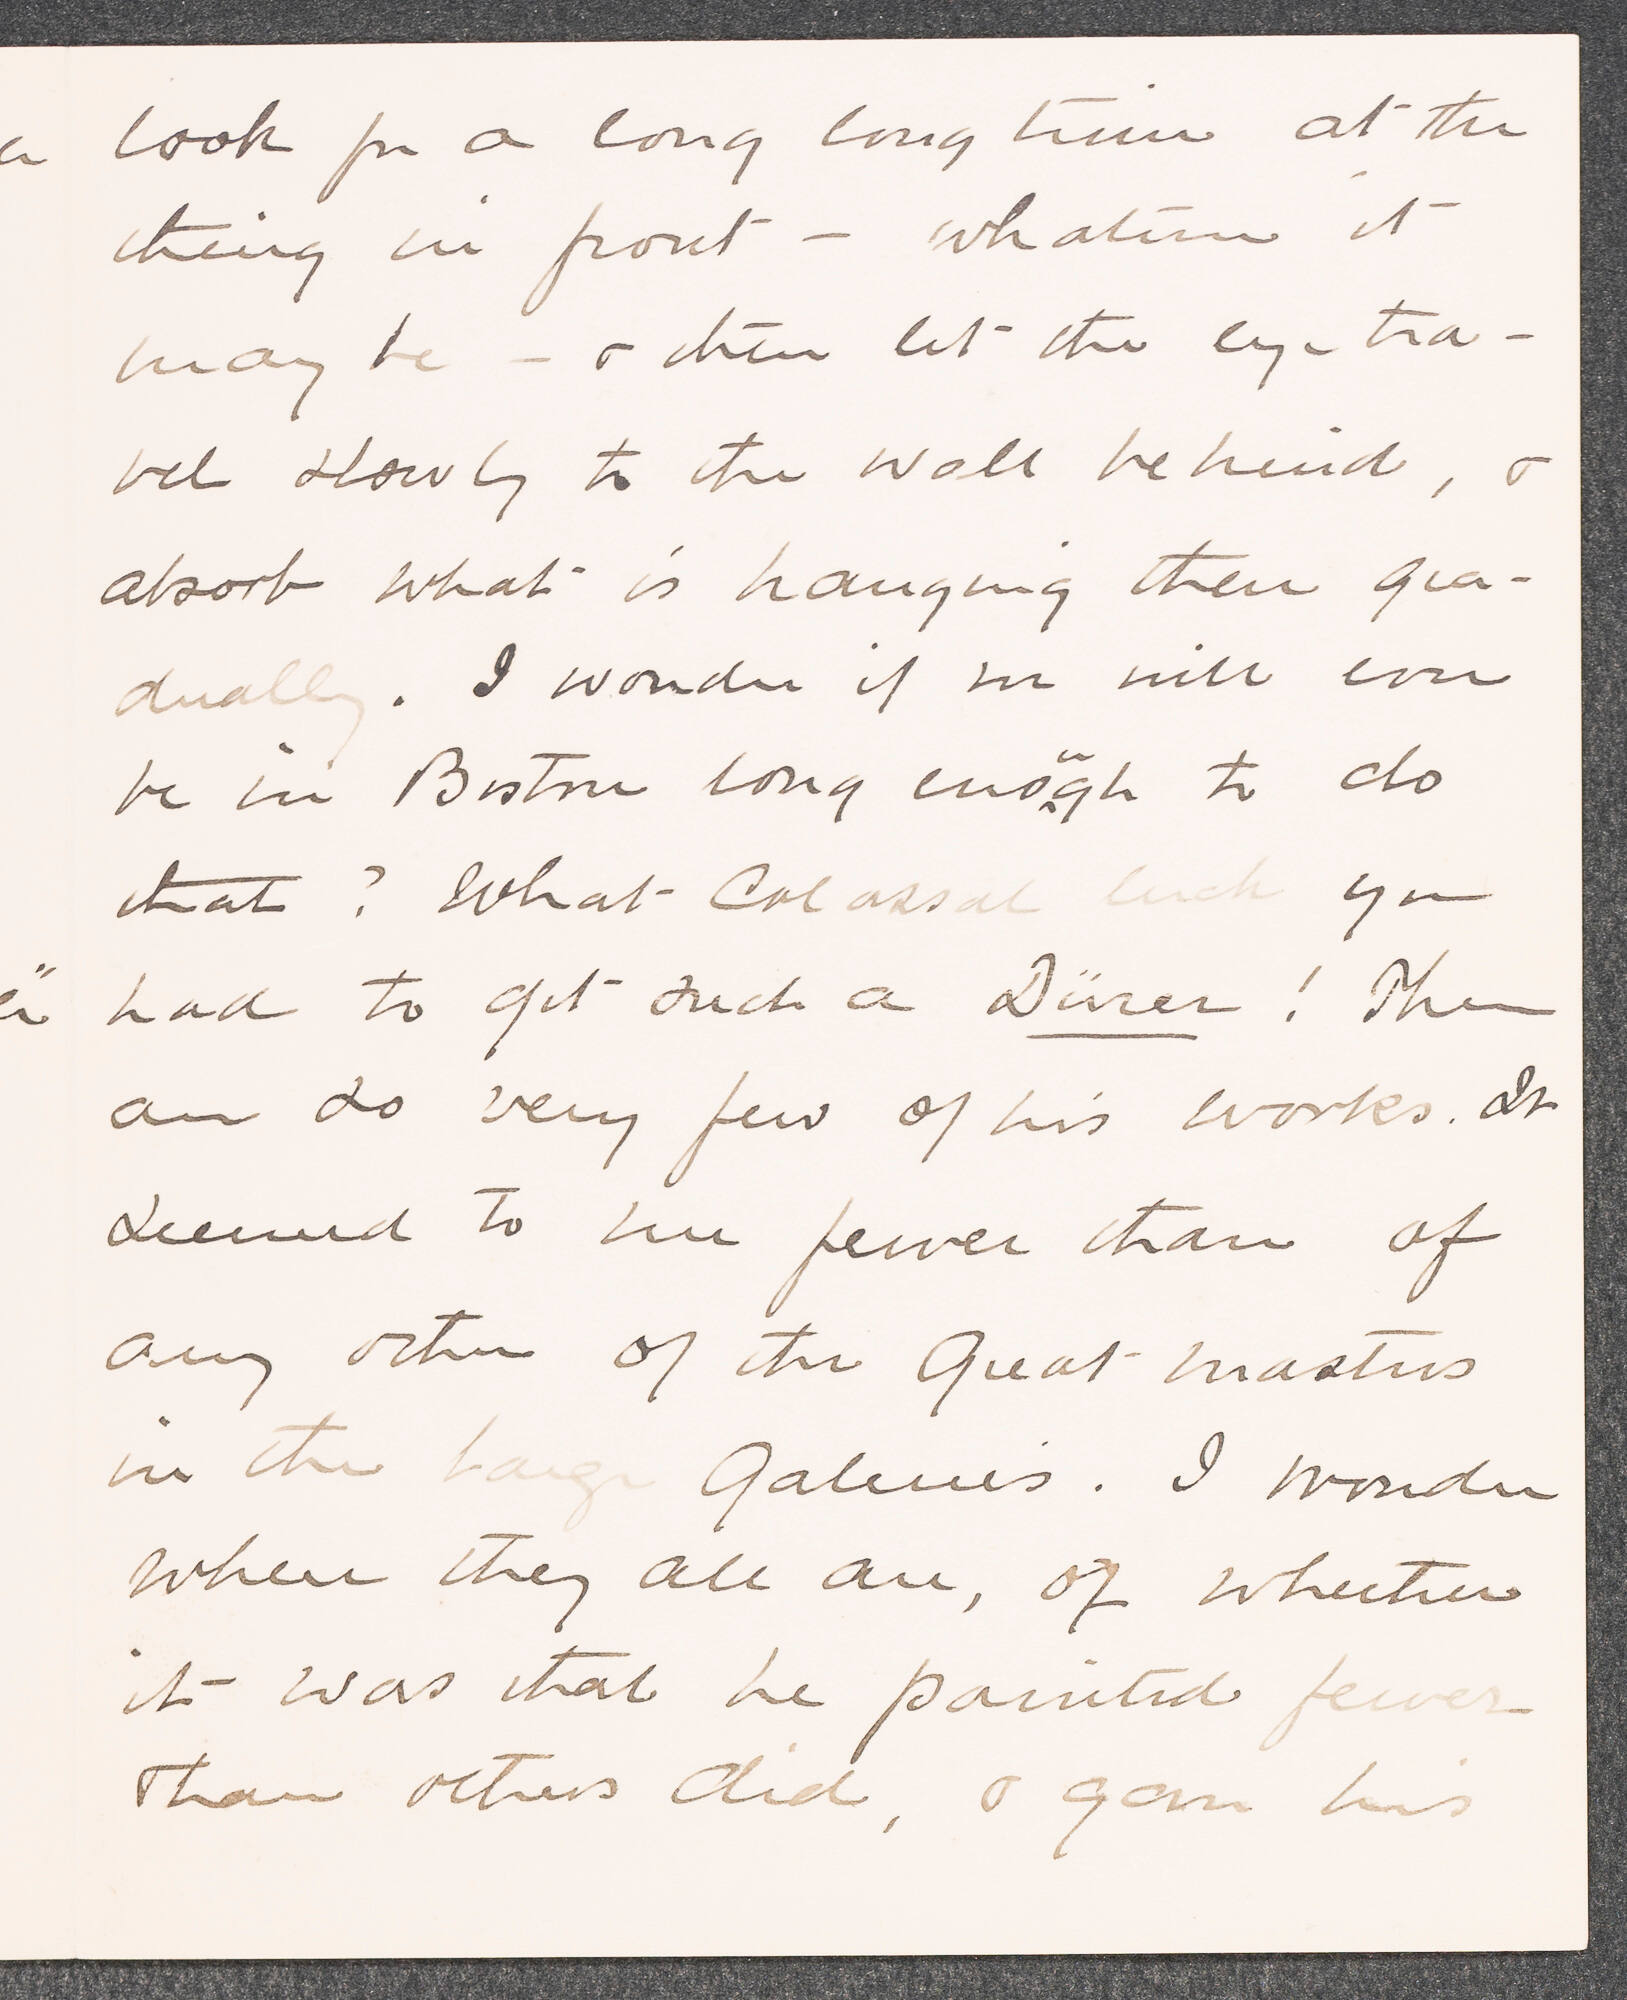 look for a long long time at the
thing in front – whatever it
may be – & then let the eye tra-
vel slowly to the wall behind, &
absorb what is hanging there gra-
dually. I wonder if we will ever
be in Boston long enough to do
that? What Colossal luck you
had to get such a Dürer! There
are so very few of his works. It
seemed to me fewer than of
any other of the Great masters
in the large Galeries. I wonder
where they all are, or whether
it was that he painted fewer
than others did, & gave his